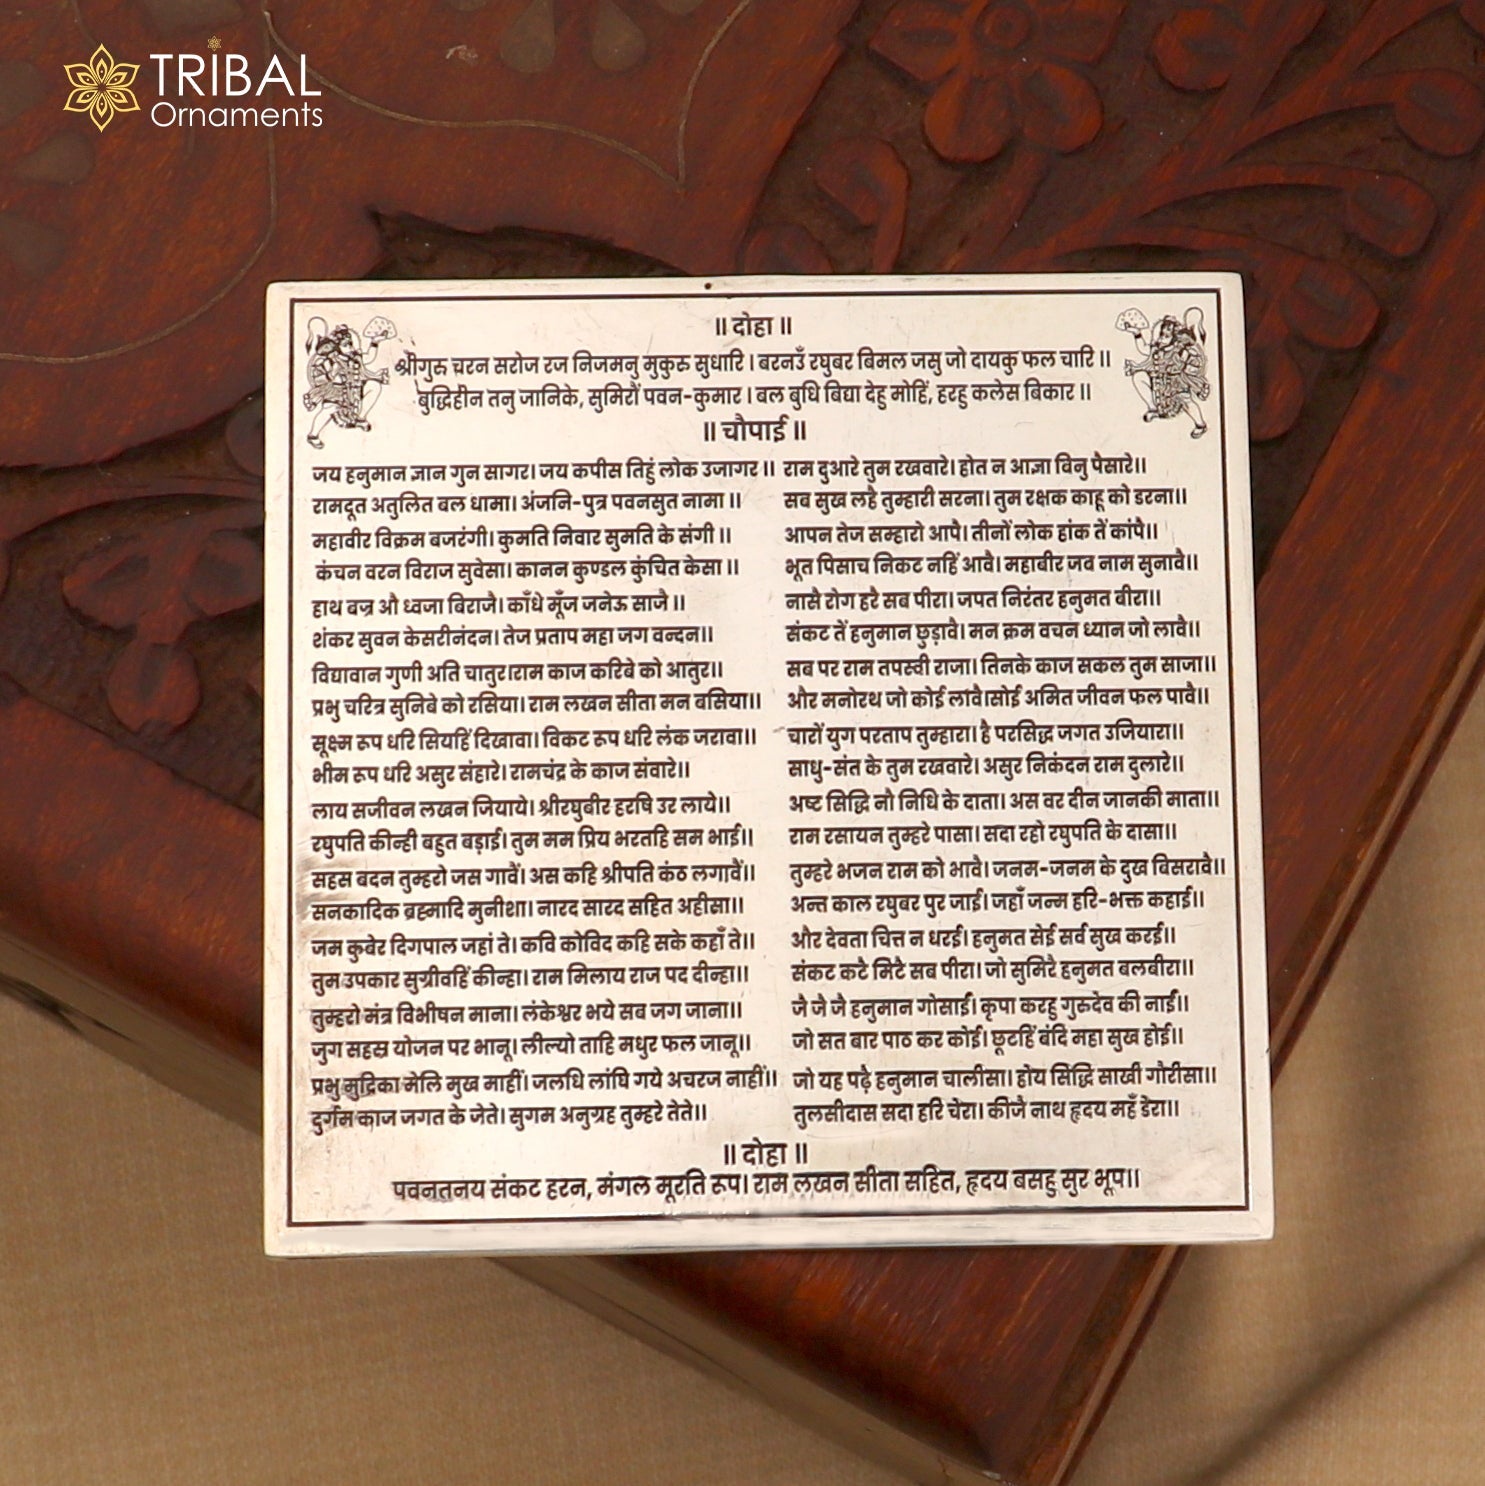 TRIBAL
Ornaments
॥ दोहा ॥
श्रीगुरु चरन सरोज रज निजमनु मुकुरु सुधारि । बरनउँ रघुबर बिमल जसु जो दायकु फल चारि ॥
बुद्धिहीन तनु जानिके, सुमिरौं पवन-कुमार । बल बुधि बिद्या देहु मोहिं, हरहु कलेस बिकार ॥
॥ चौपाई ॥
जय हनुमान ज्ञान गुन सागर। जय कपीस तिहुं लोक उजागर॥
रामदूत अतुलित बल धामा। अंजनि-पुत्र पवनसुत नामा॥
महावीर विक्रम बजरंगी। कुमति निवार सुमति के संगी॥
कंचन वरन विराज सुवेसा। कानन कुण्डल कुंचित केसा॥
हाथ वज्र औ ध्वजा बिराजै। काँधे मूँज जनेऊ साजै॥
शंकर सुवन केसरीनंदन। तेज प्रताप महा जग वन्दन॥
विद्यावान गुणी अति चातुर।राम काज करिबे को आतुर॥
प्रभु चरित्र सुनिबे को रसिया। राम लखन सीता मन बसिया॥
सूक्ष्म रूप धरि सियहिं दिखावा। विकट रूप धरि लंक जरावा॥
भीम रूप धरि असुर संहारे। रामचंद्र के काज संवारे॥
लाय सजीवन लखन जियाये। श्रीरघुबीर हरषि उर लाये॥
रघुपति कीन्ही बहुत बड़ाई। तुम मम प्रिय भरतहि सम भाई॥
सहस बदन तुम्हरो जस गावैं। अस कहि श्रीपति कंठ लगावैं॥
सनकादिक ब्रह्मादि मुनीशा। नारद सारद सहित अहीसा॥
जम कुबेर दिगपाल जहां ते। कवि कोविद कहि सके कहाँ ते॥
तुम उपकार सुग्रीवहिं कीन्हा। राम मिलाय राज पद दीन्हा॥
तुम्हरो मंत्र विभीषन माना। लंकेश्वर भये सब जग जाना॥
जुग सहस्र योजन पर भानू। लील्यो ताहि मधुर फल जानू॥
प्रभु मुद्रिका मेलि मुख माहीं। जलधि लांघि गये अचरज नाहीं॥
दुर्गम काज जगत के जेते। सुगम अनुग्रह तुम्हरे तेते॥
राम दुआरे तुम रखवारे। होत न आज्ञा विनु पैसारे॥
सब सुख लहै तुम्हारी सरना। तुम रक्षक काहू को डरना॥
आपन तेज सम्हारो आपै। तीनों लोक हांक तें कांपै॥
भूत पिसाच निकट नहिं आवै। महाबीर जव नाम सुनावै॥
नासै रोग हरै सब पीरा। जपत निरंतर हनुमत बीरा॥
संकट तें हनुमान छुड़ावै। मन क्रम वचन ध्यान जो लावै॥
सब पर राम तपस्वी राजा। तिनके काज सकल तुम साजा॥
और मनोरथ जो कोई लावै।सोई अमित जीवन फल पावै॥
चारों युग परताप तुम्हारा। है परसिद्ध जगत उजियारा॥
साधु-संत के तुम रखवारे। असुर निकंदन राम दुलारे॥
अष्ट सिद्धि नौ निधि के दाता। अस वर दीन जानकी माता॥
राम रसायन तुम्हरे पासा। सदा रहो रघुपति के दासा॥
तुम्हरे भजन राम को भावै। जनम-जनम के दुख विसरावै॥
अन्त काल रघुबर पुर जाई। जहाँ जन्म हरि-भक्त कहाई॥
और देवता चित्त न धरई। हनुमत सेई सर्व सुख करई॥
संकट कटै मिटै सब पीरा। जो सुमिरै हनुमत बलबीरा॥
जै जै जै हनुमान गोसाईं। कृपा करहु गुरुदेव की नाईं॥
जो सत बार पाठ कर कोई। छूटहिं बंदि महा सुख होई॥
जो यह पढ़े हनुमान चालीसा। होय सिद्धि साखी गौरीसा॥
तुलसीदास सदा हरि चेरा। कीजै नाथ हृदय महँ डेरा॥
॥ दोहा ॥
पवनतनय संकट हरन, मंगल मूरति रूप। राम लखन सीता सहित, हृदय बसहु सुर भूप॥